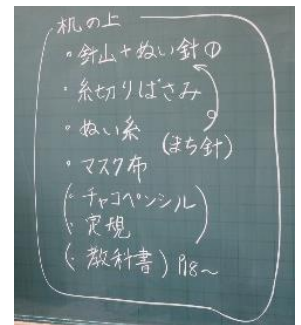 机の上
・針山+ぬい針①
・糸切りばさみ
・ぬい糸 (まち針)
・マスク布
(・チャコペンシル
・定規)
(・教科書) P18~